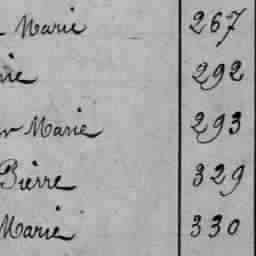 Marie 267
292
Marie 293
Pierre 329
Marie 330